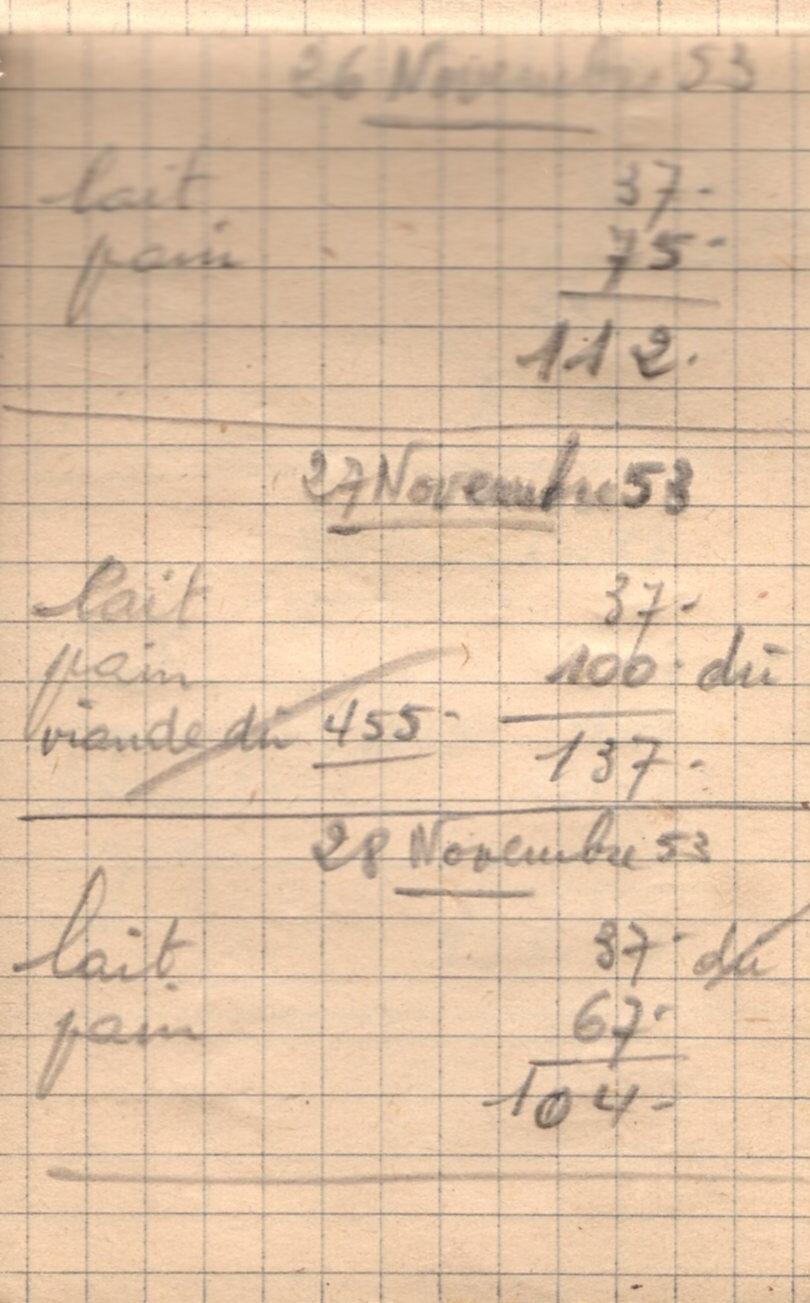 26 Novembre 53
lait 37.
pain 75.
112.
27 Novembre 53
lait 37.
pain 100. dû
viande dû 455. 137.
28 Novembre 53
lait 37. dû
pain 67.
104.